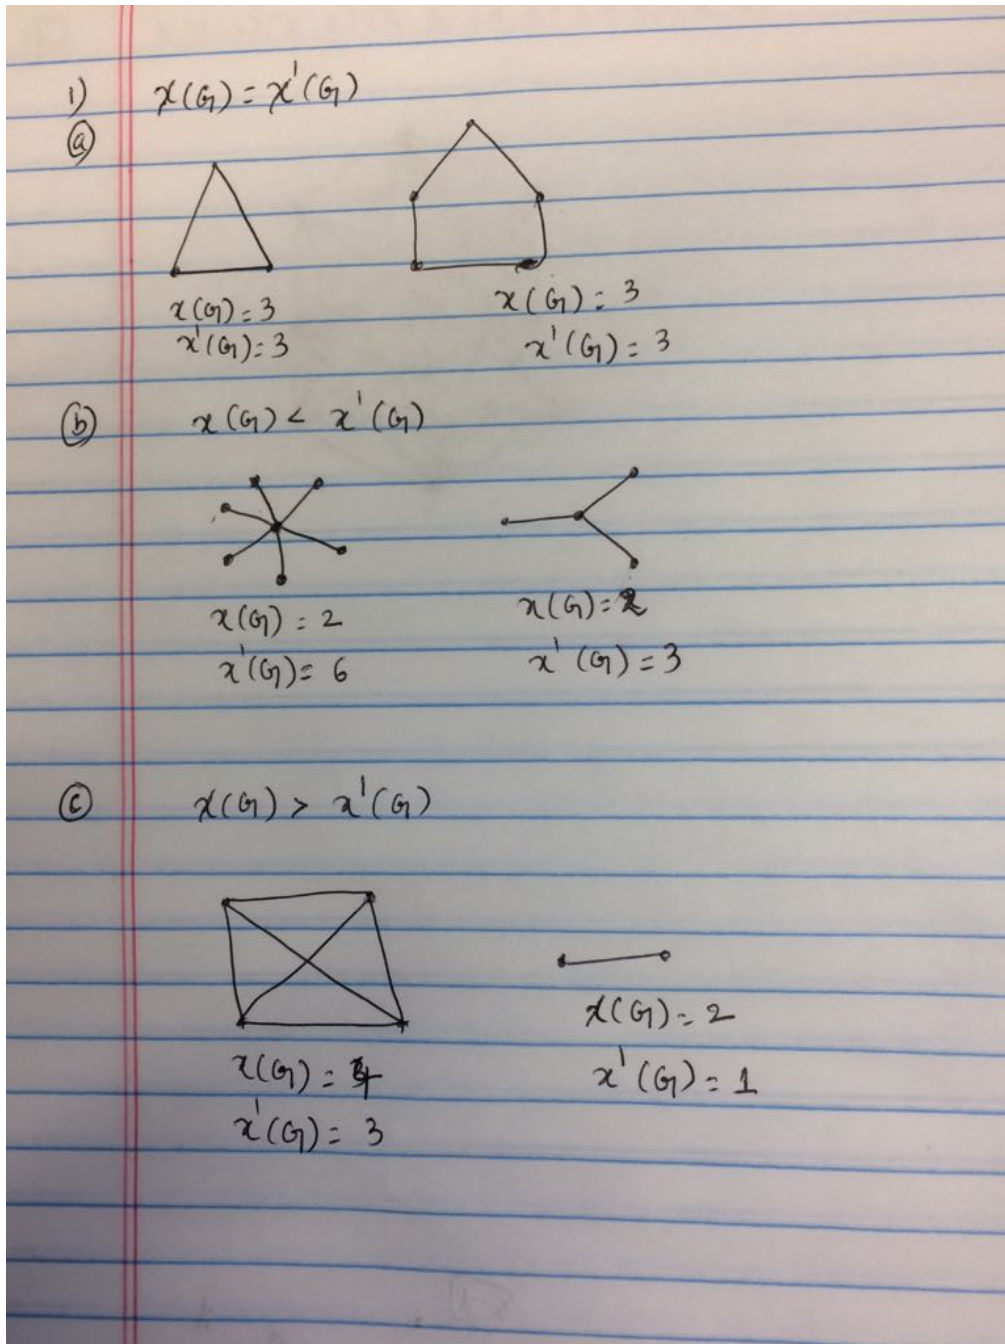 1) χ(G) = χ'(G)
(a)
χ(G) = 3
χ'(G) = 3
χ(G) = 3
χ'(G) = 3
(b) χ(G) < χ'(G)
χ(G) = 2
χ'(G) = 6
χ(G) = 2
χ'(G) = 3
(c) χ(G) > χ'(G)
χ(G) = 4
χ'(G) = 3
χ(G) = 2
χ'(G) = 1